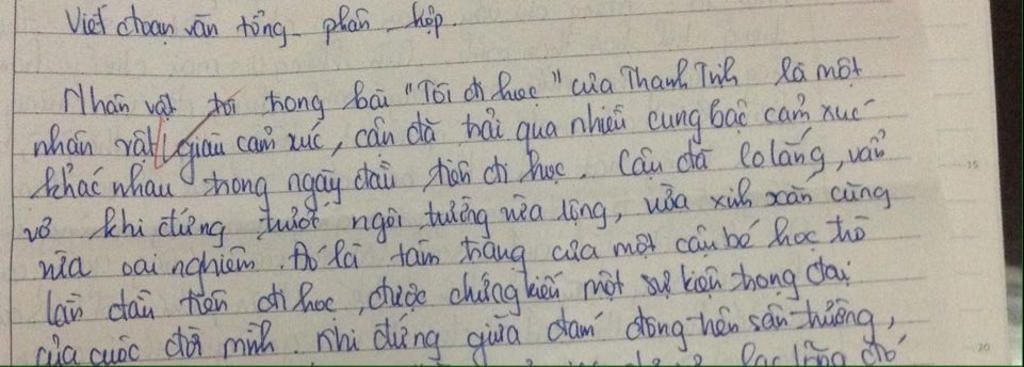 Viết đoạn văn tổng - phân - hợp.
Nhân vật tôi trong bài "Tôi đi học" của Thanh Tịnh là một
nhân vật giàu cảm xúc, cần đã trải qua nhiều cung bậc cảm xúc
khác nhau trong ngày đầu tiên đi học. Cậu đã lo lắng, vẩn
vơ khi đứng trước ngôi trường vừa rộng, vừa xinh xắn cũng
vừa oai nghiêm. Đó là tâm trạng của một cậu bé học trò
lần đầu tiên đi học, được chứng kiến một sự kiện trọng đại
của cuộc đời mình. Khi đứng giữa đám đông trên sân trường,
lạc lõng đó